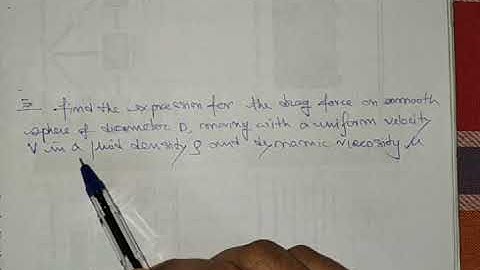 3. find the expression for the drag force on smooth
sphere of diameter D, moving with a uniform velocity
V in a fluid density ρ and dynamic viscosity μ